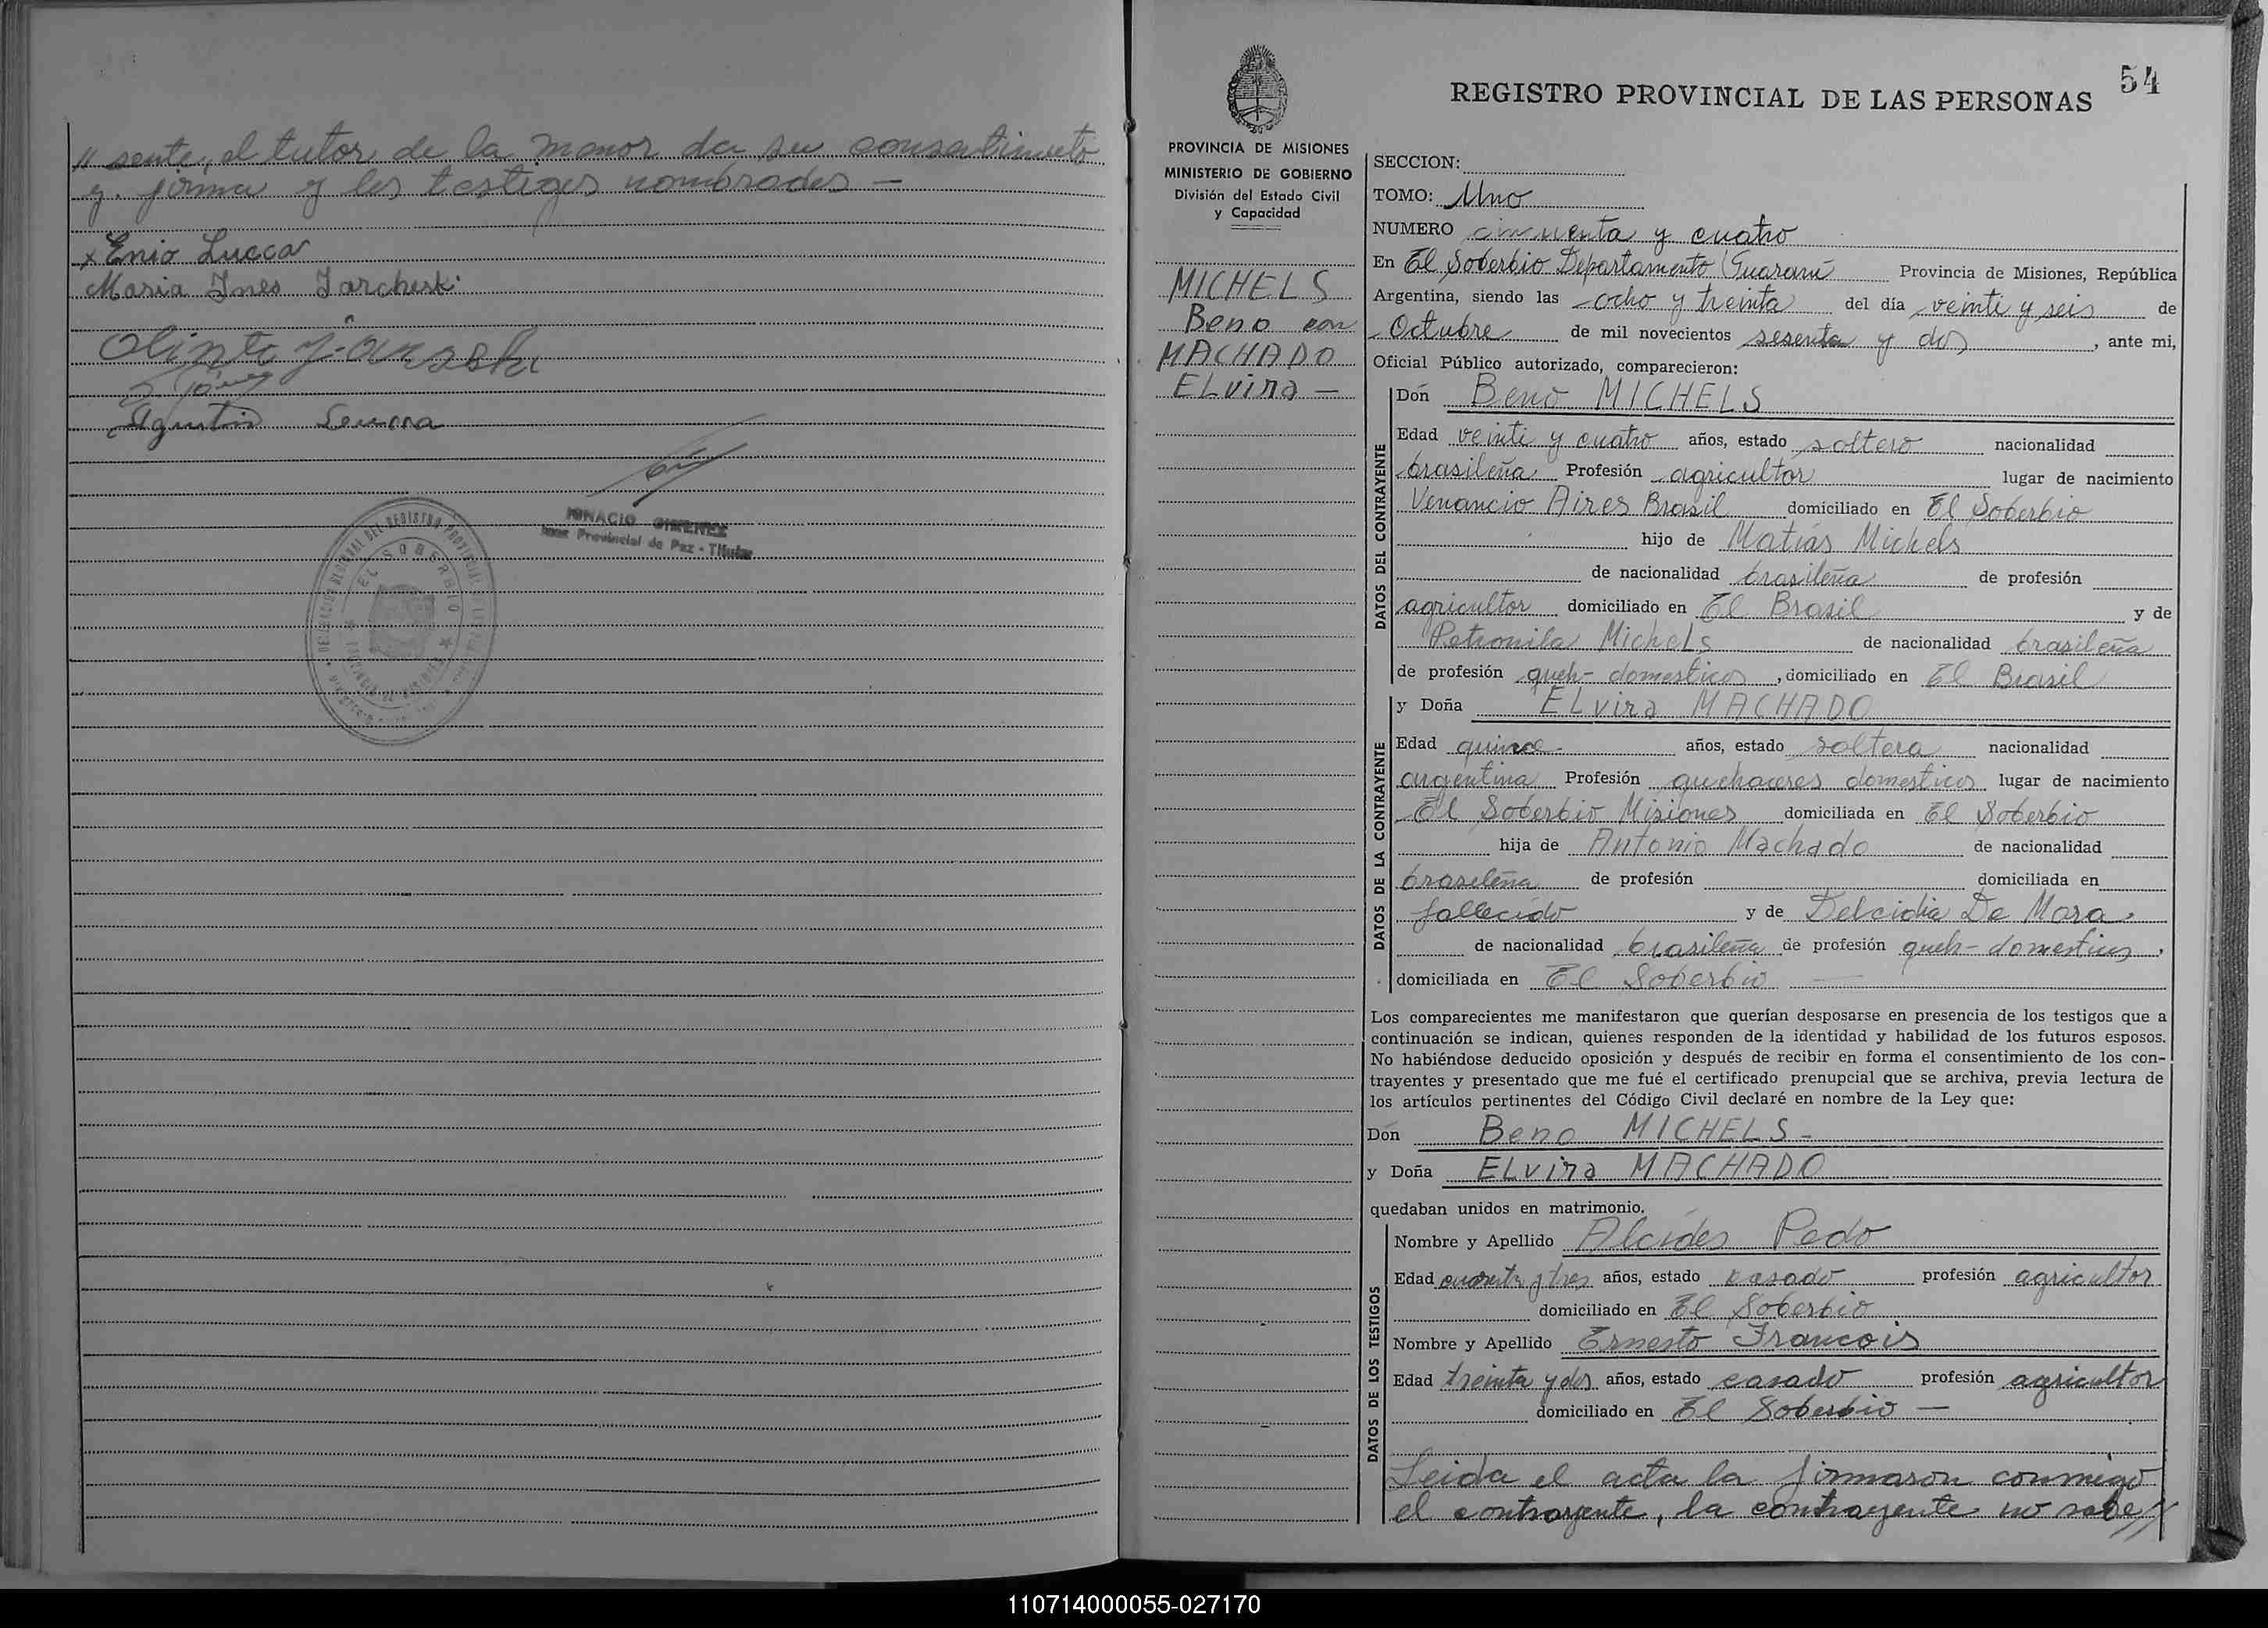 // sente, el tutor de la menor da su consentimiento
y firma y los testigos nombrados —
x Enio Lucca
Maria Ines Jarcheski
Olinto
Agustin
IGNACIO GIMENEZ
Juez Provincial de Paz - Titular
EL SOBERBIO
54
REGISTRO PROVINCIAL DE LAS PERSONAS
PROVINCIA DE MISIONES
MINISTERIO DE GOBIERNO
División del Estado Civil
y Capacidad
MICHELS
Beno con
MACHADO
ELvira —
SECCION:
TOMO: Uno
NUMERO cincuenta y cuatro
En El Soberbio Departamento Guaraní Provincia de Misiones, República
Argentina, siendo las ocho y treinta del día veinte y seis de
Octubre de mil novecientos sesenta y dos, ante mi,
Oficial Público autorizado, comparecieron:
DATOS DEL CONTRAYENTE
Don Beno MICHELS
Edad veinte y cuatro años, estado soltero nacionalidad
brasileña Profesión agricultor lugar de nacimiento
Venancio Aires Brasil domiciliado en El Soberbio
hijo de Matías Michels
de nacionalidad brasileña de profesión
agricultor domiciliado en El Brasil y de
Petronila Michels de nacionalidad brasileña
de profesión queh- domesticos, domiciliado en El Brasil
DATOS DE LA CONTRAYENTE
y Doña ELvira MACHADO
Edad quince - años, estado soltera nacionalidad
argentina Profesión quehaceres domesticos lugar de nacimiento
El Soberbio Misiones domiciliada en El Soberbio
hija de Antonio Machado de nacionalidad
brasileña de profesión domiciliada en
fallecido y de Delcidia De Mora
de nacionalidad brasileña de profesión queh- domesticos,
domiciliada en El Soberbio —
Los comparecientes me manifestaron que querían desposarse en presencia de los testigos que a
continuación se indican, quienes responden de la identidad y habilidad de los futuros esposos.
No habiéndose deducido oposición y después de recibir en forma el consentimiento de los con-
trayentes y presentado que me fué el certificado prenupcial que se archiva, previa lectura de
los artículos pertinentes del Código Civil declaré en nombre de la Ley que:
Don Beno MICHELS -
y Doña ELvira MACHADO
quedaban unidos en matrimonio.
DATOS DE LOS TESTIGOS
Nombre y Apellido Alcides Pedo
Edad cuarenta y tres años, estado casado profesión agricultor
domiciliado en El Soberbio
Nombre y Apellido Ernesto Francois
Edad treinta y dos años, estado casado profesión agricultor
domiciliado en El Soberbio —
Leida el acta la firmaron conmigo
el contrayente, la contrayente no sabe //
110714000055-027170